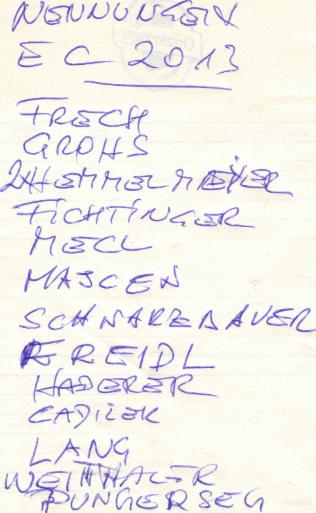 NENNUNGEN
EC 2013
FRECH
GROHS
2xHEMMELMEYER
FICHTINGER
MECL
MASCEN
SCHWARZBAUER
FREIDL
HADERER
CADILEK
LANG
WEITHALER
PUNGERSEG